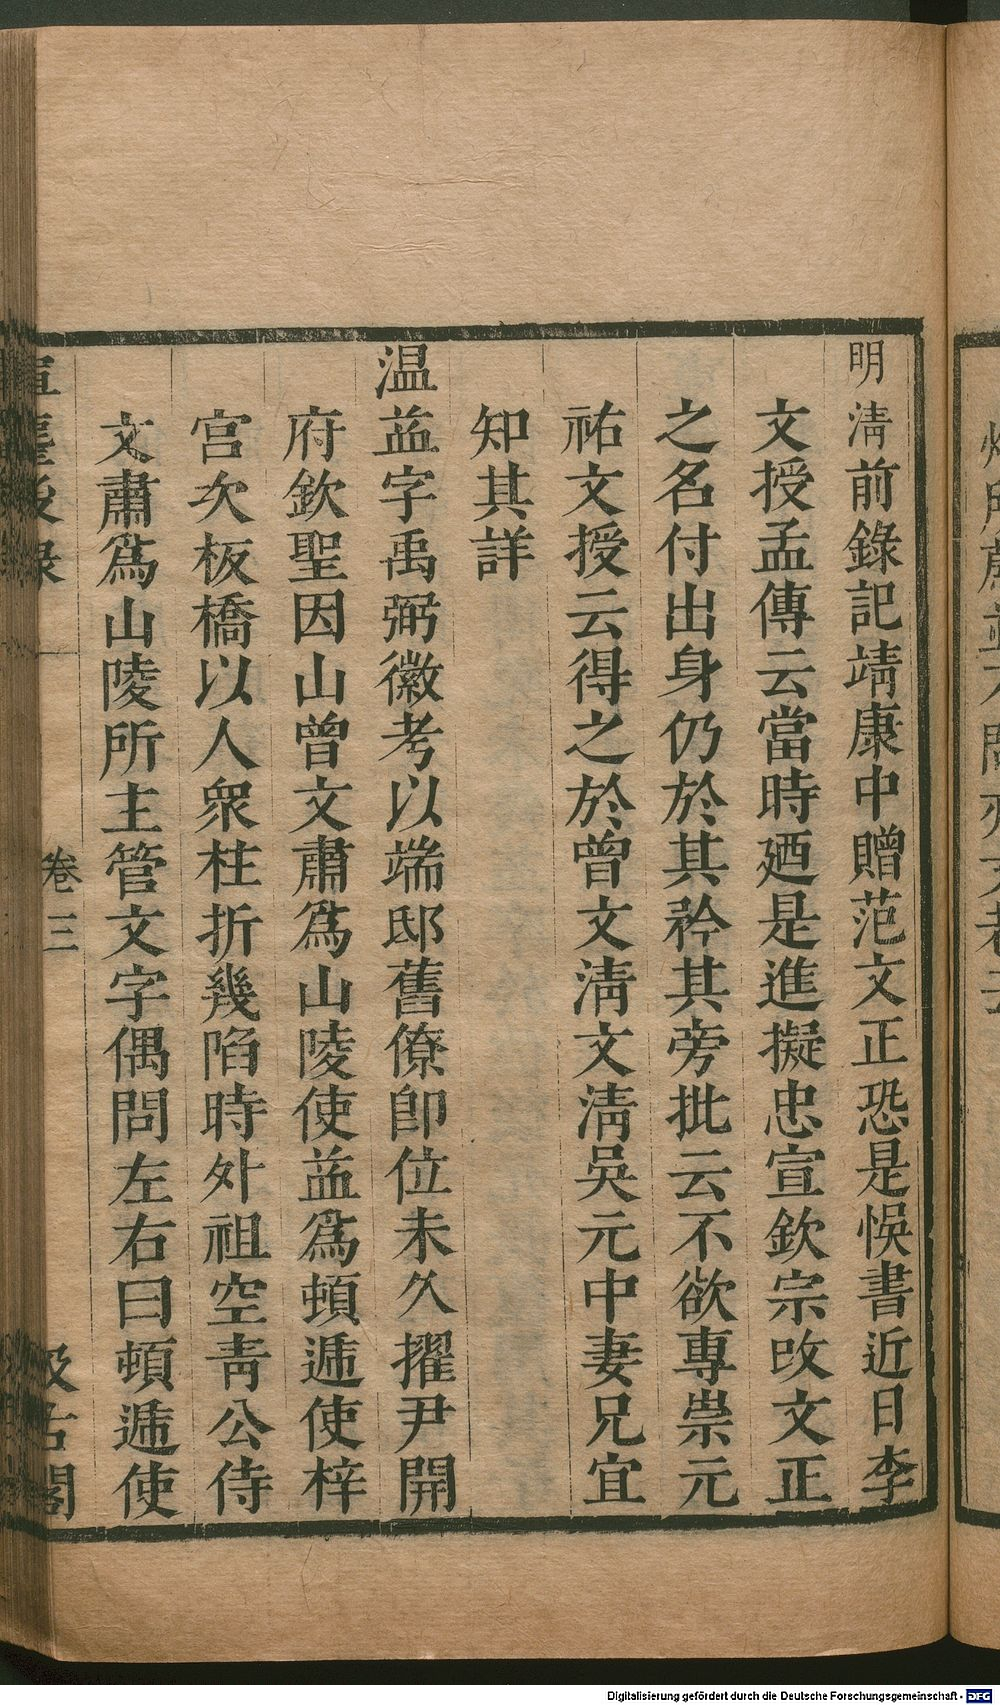 明淸前錄記靖康中贈范文正恐是悞書近日李
文授孟傳云當時廼是進擬忠宣欽宗攺文正
之名付出身仍於其衿其旁批云不欲專崇元
祐文授云得之於曾文淸文淸吳元中妻兄宜
知其詳
温益字禹弼徽考以端邸舊僚卽位未久擢尹開
府欽聖因山曾文肅爲山陵使益爲頓遞使梓
宮次板橋以人衆柱折幾陷時外祖空靑公侍
文肅爲山陵所主管文字偶問左右曰頓遞使
卷三
Digitalisierung gefördert durch die Deutsche Forschungsgemeinschaft - DFG